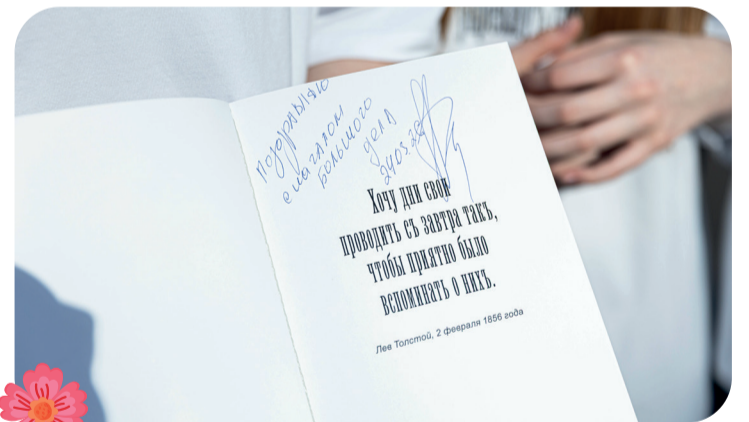 поздравляю
с началом
большого
дела
Хочу дни свои
проводить съ завтра такъ,
чтобы приятно было
вспоминать о нихъ.
Лев Толстой, 2 февраля 1856 года